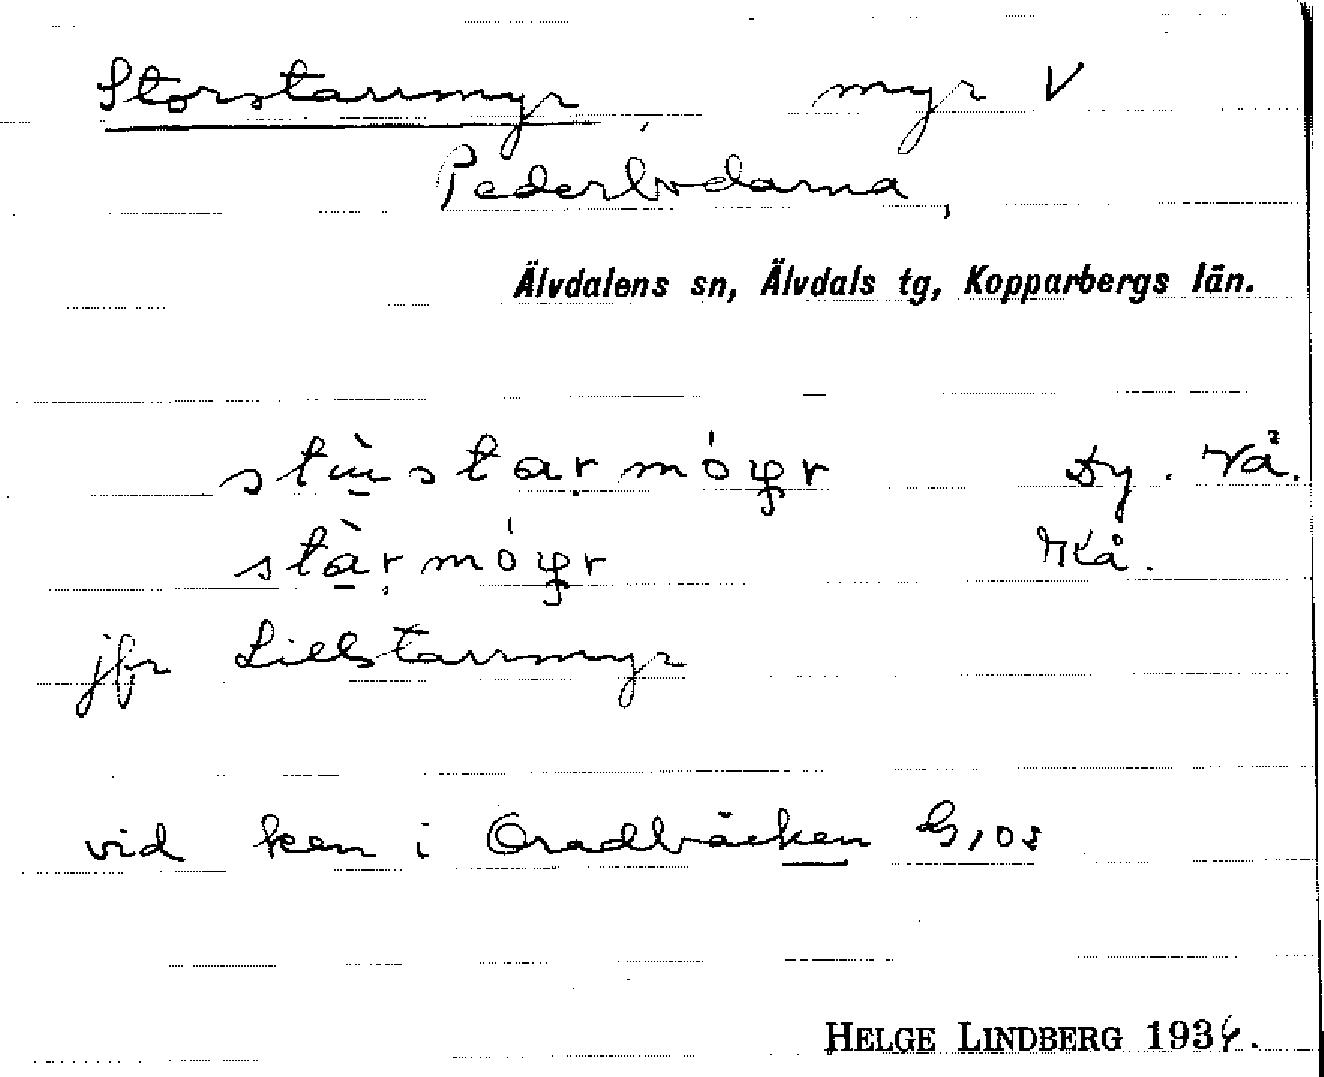 Storstarrmyr myr V
Pederbodarna,
Älvdalens sn, Älvdals tg, Kopparbergs län.
Dy. Vå.
Kå.
jfr Lillstarrmyr
vid ken i Oradbäcken G 103
HELGE LINDBERG 1934.